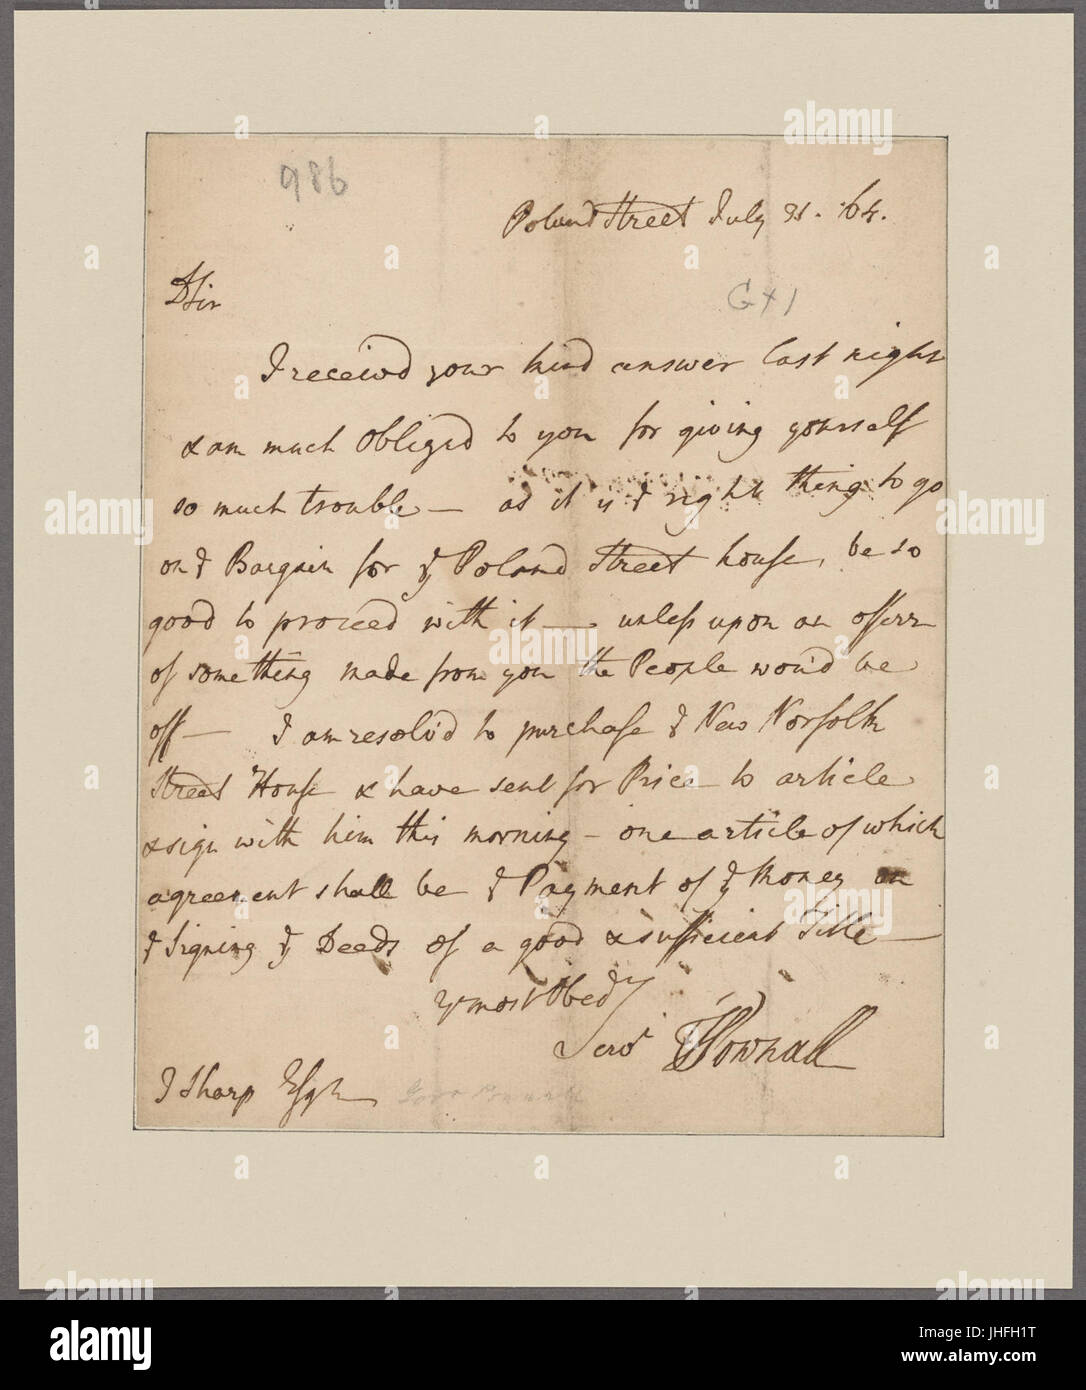 986
Poland Street July 31. '64.
DSir
G + 1
I receiv'd your kind answer last night
& am much Obliged to you for giving yourself
so much trouble — as it is ye right thing to go
on ye Bargain for ye Poland Street house, be so
good to proceed with it — unless upon an offerr
of something made from you the People wou'd be
off — I am resolv'd to purchase ye New Norfolk
Street House & have sent for Price to article
& sign with him this morning — one article of which
agreement shall be ye Payment of ye Money on
ye Signing ye Deeds of a good & sufficient Title —
Yr most Obedt
Servt TPownall
J Sharp Esqr
Gov Pownall
alamy
JHFH1T
www.alamy.com